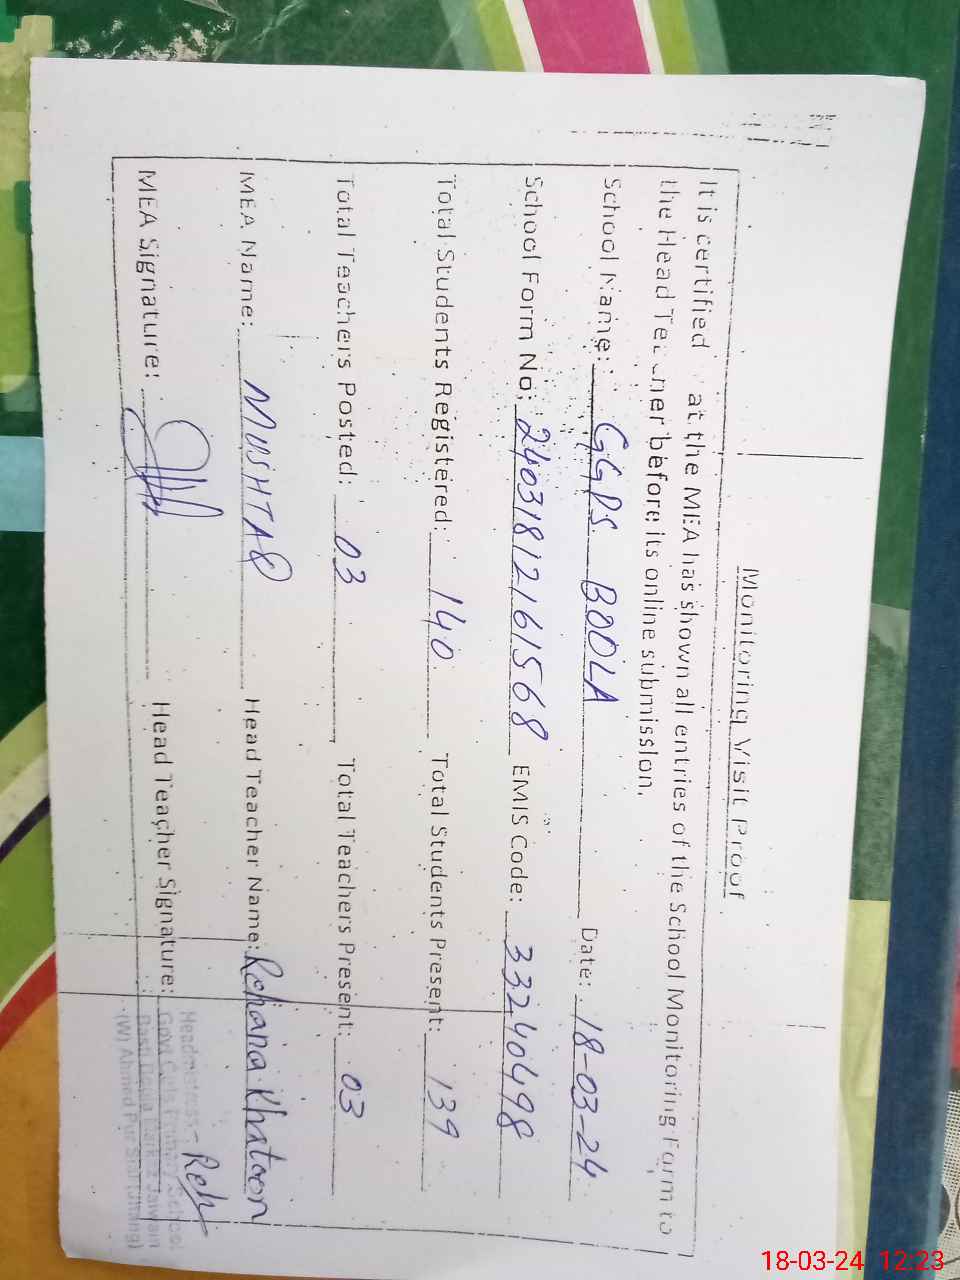 Monitoring Visit Proof
It is certified at the MEA has shown all entries of the School Monitoring Farm to
the Head before its online submission.
School Name: GGPS BODLA Date: 18-03-24
School Form No: 2403181216 1568 EMIS Code: 33240498
Total Students Registered: 140 Total Students Present: 139
Total Teachers Posted: 03 Total Teachers Present: 03
MEA Name: MUSHTAQ Head Teacher Name: Rehana Khatoon
MEA Signature: Head Teacher Signature: Reh
Headmistress
Govt. Girls Primary School
Basti
(W) Ahmed Pur
18-03-24 12:23